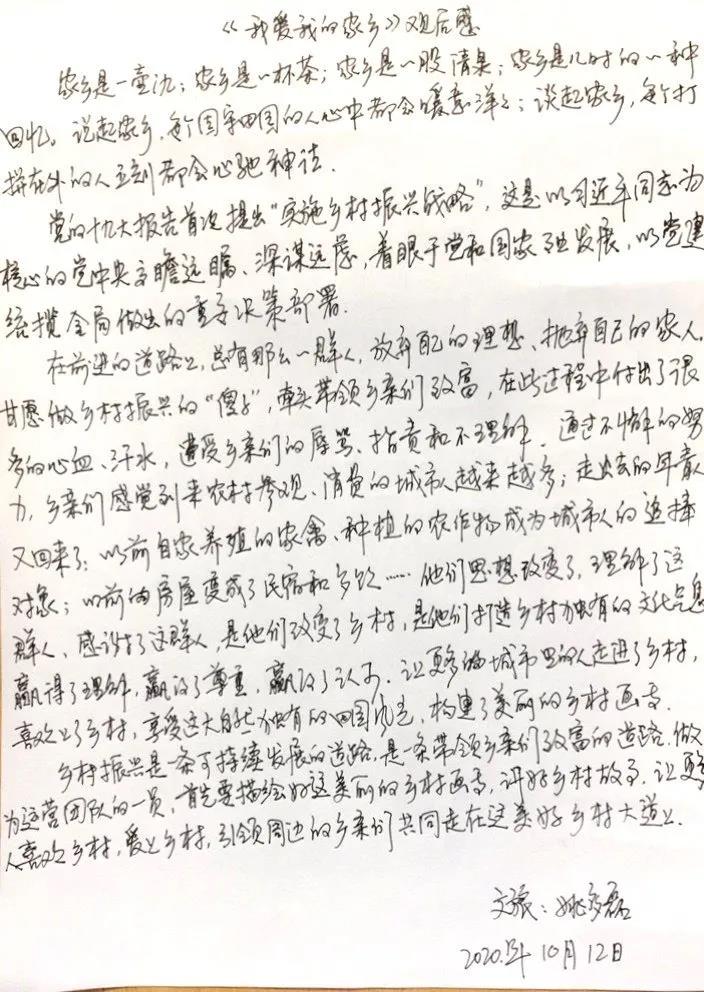 《我爱我的家乡》观后感
家乡是一壶酒；家乡是一杯茶；家乡是一股清泉；家乡是儿时的一种
回忆。说起家乡，每个固守田园的人心中都会暖意洋洋；谈起家乡，每个打
拼在外的人立刻都会心驰神往．
党的十九大报告首次提出“实施乡村振兴战略”，这是以习近平同志为
核心的党中央高瞻远瞩、深谋远虑，着眼于党和国家事业发展，以党建
统揽全局做出的重予决策部署．
在前进的道路上，总有那么一群人，放弃自己的理想、抛弃自己的家人．
甘愿做乡村振兴的“傻子”，牵头带领乡亲们致富，在此过程中付出了很
多的心血、汗水，遭受乡亲们的辱骂、指责和不理解．通过不懈的努
力，乡亲们感觉到来农村参观、消费的城市人越来越多；走出去的年青人
又回来了；以前自家养殖的家禽、种植的农作物成为城市人的追捧
对象；以前的房屋变成了民宿和乡饮……他们思想改变了，理解了这
群人、感谢了这群人，是他们改变了乡村，是他们打造乡村独有的文化气息
赢得了理解，赢得了尊重，赢得了认可．让更多的城市里的人走进了乡村，
喜欢上了乡村，享受这大自然独有的田园风光，构建了美丽的乡村画卷．
乡村振兴是一条可持续发展的道路，是一条带领乡亲们致富的道路．做
为运营团队的一员，首先要描绘好这美丽的乡村画卷，讲好乡村故事．让更多
人喜欢乡村，爱上乡村，引领周边的乡亲们共同走在这美好乡村大道上．
文旅：姚多磊
2020年10月12日